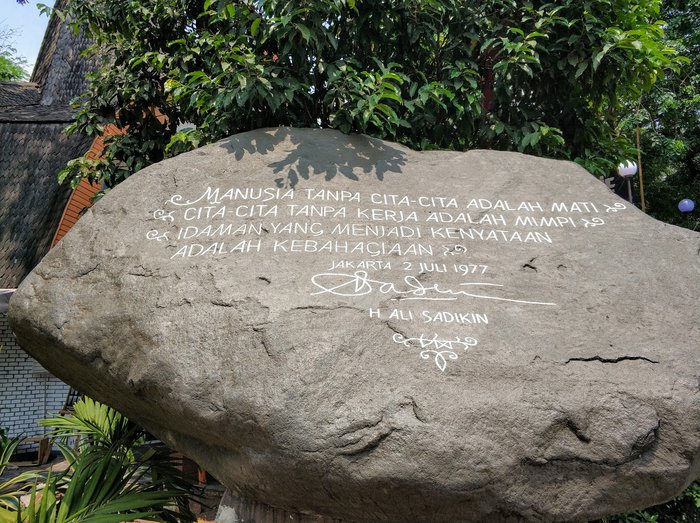 MANUSIA TANPA CITA-CITA ADALAH MATI
CITA-CITA TANPA KERJA ADALAH MIMPI
IDAMAN YANG MENJADI KENYATAAN
ADALAH KEBAHAGIAAN
JAKARTA 2 JULI 1977
H. ALI SADIKIN